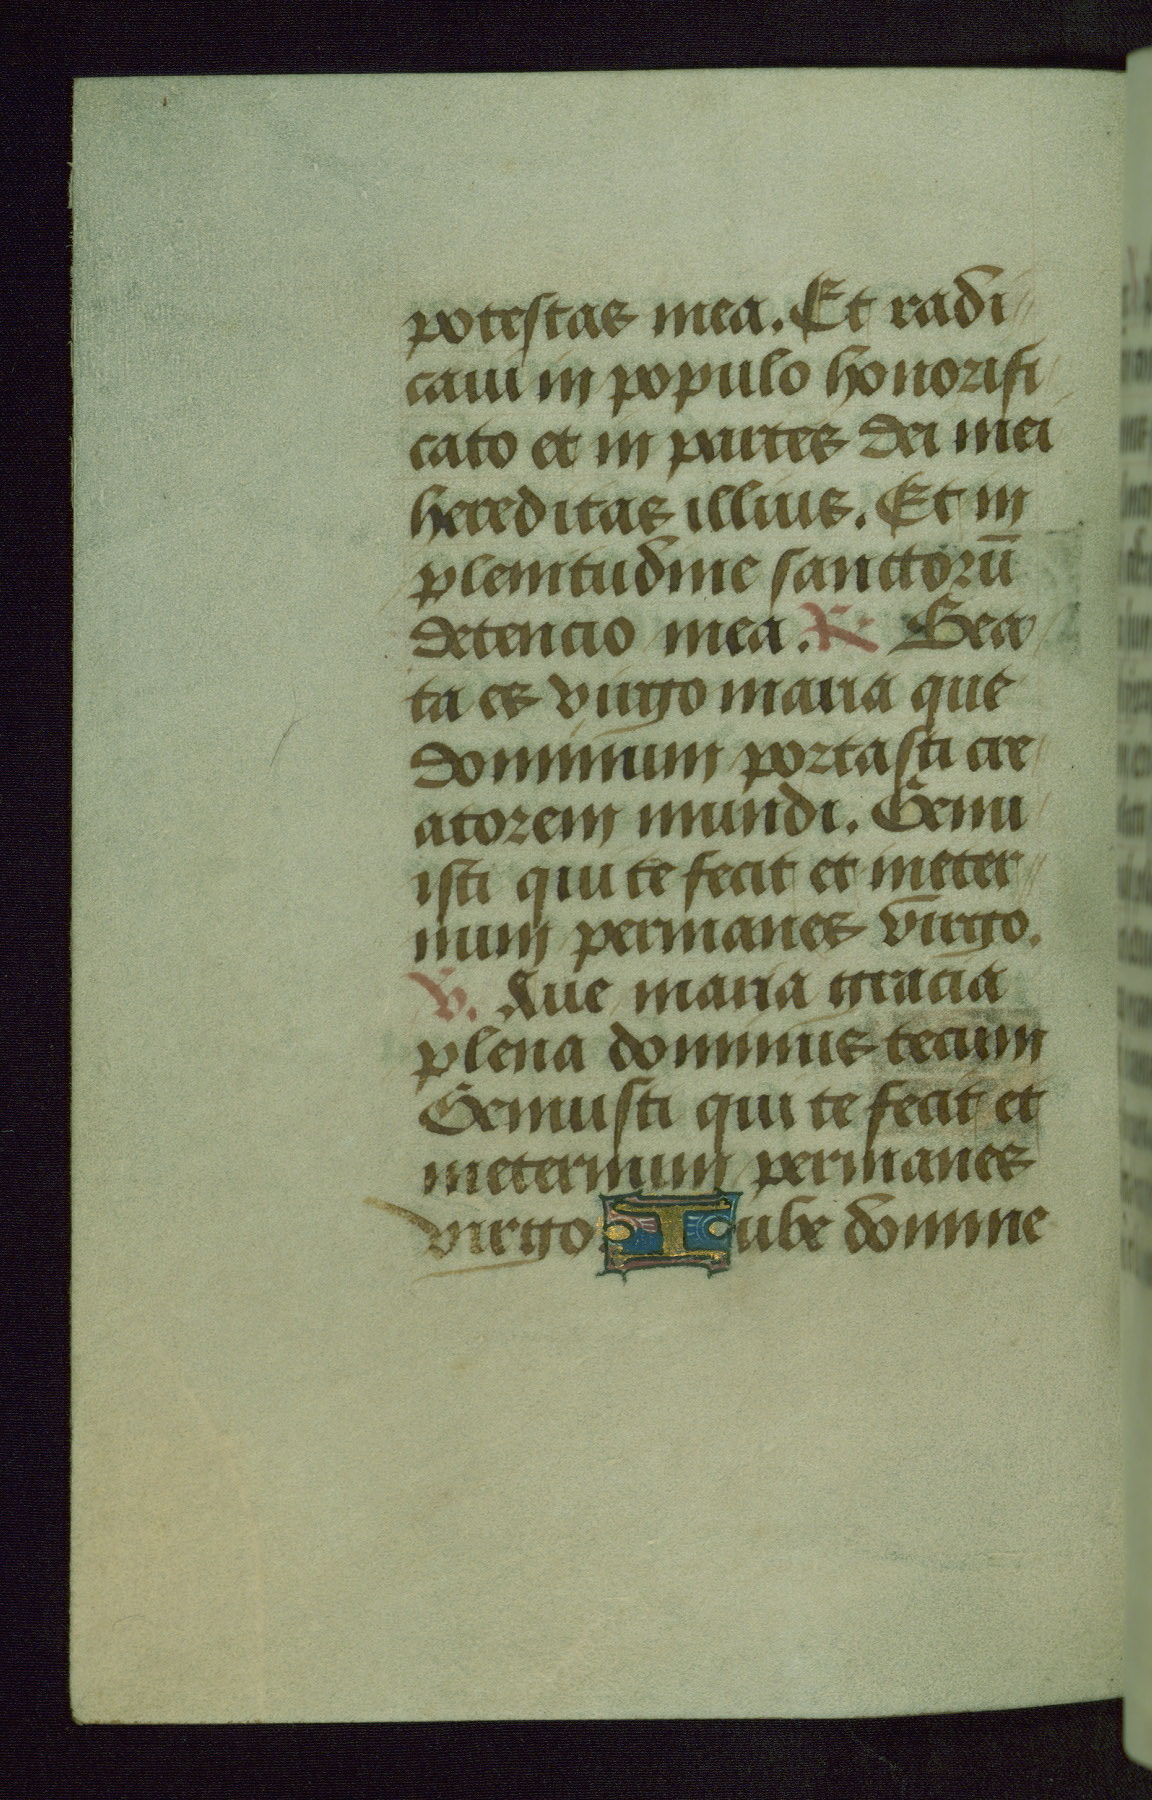 potestas mea. Et radi
caui in populo honorifi
cato et in partes dei mei
hereditas illius. Et in
plenitudine sanctorū
detencio mea. R. Bea
ta es virgo maria que
dominum portasti cre
atorem mundi. Genu
isti qui te fecit et ineter
num permanes virgo.
V. Aue maria gracia
plena dominus tecum
Genuisti qui te fecit et
ineternum permanes
virgo. Iube domine